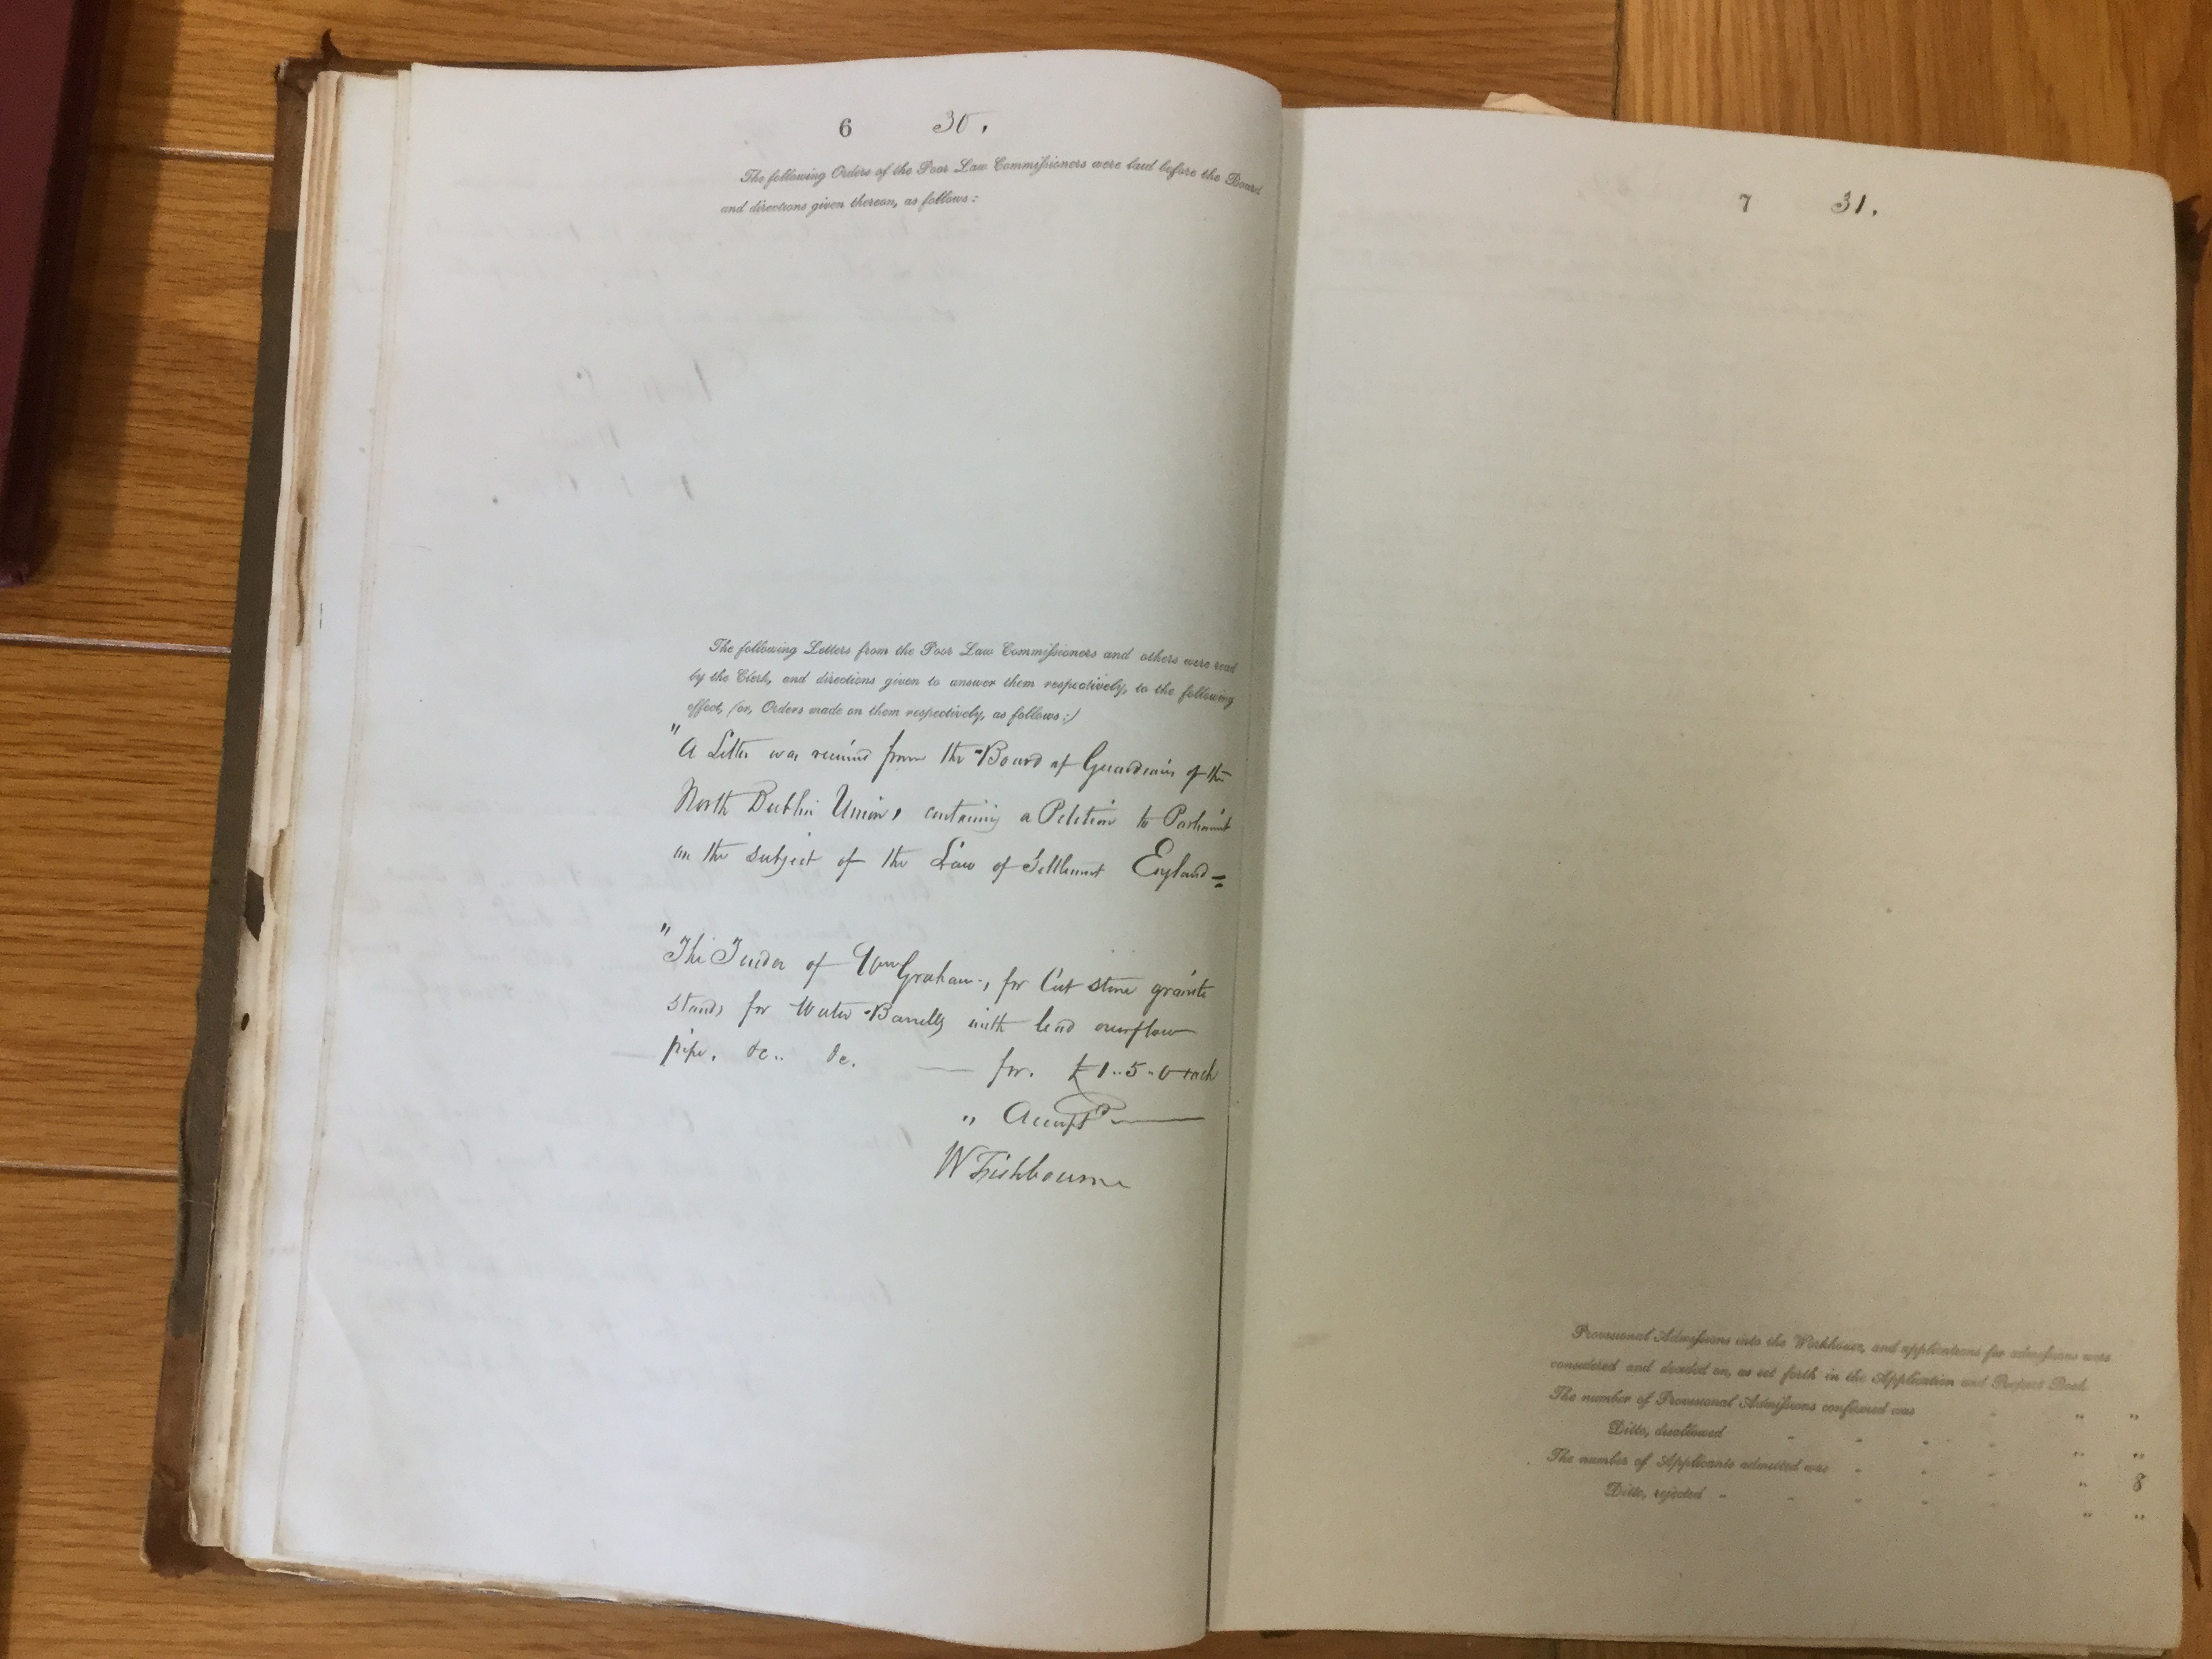 6 30.
The following Orders of the Poor Law Commissioners were laid before the Board
and directions given thereon, as follows:
The following Letters from the Poor Law Commissioners and others were read
by the Clerk, and directions given to answer them respectively, to the following
effect, (or, Orders made on them respectively, as follows:)
"A Letter was received from the Board of Guardians of the
North Dublin Union, containing a Petition to Parliament
on the subject of the Law of Settlement England =
"The Tender of Wm Graham, for Cut stone granite
stands for Water Barrells with lead overflow
pipe, &c.. &c. — for. £1..5..0 each
" Accepted
W Fishbourne
7 31.
Provisional Admissions into the Workhouse, and applications for admissions were
considered and decided on, as set forth in the Application and Report Book
The number of Provisional Admissions confirmed was - " "
Ditto, disallowed - - - - " "
The number of Applicants admitted was - - - - " 8
Ditto, rejected - - - - - " "